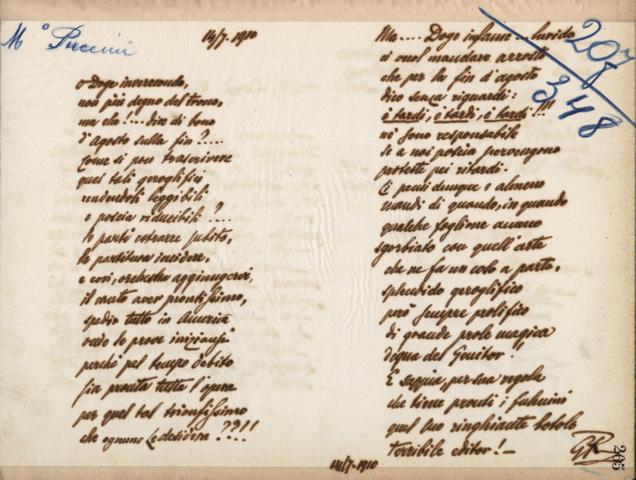 M° Puccini
14/7-1910
O Doge inverecondo,
non più degno del trono,
ma che!... dice di buono
d'agosto sulla fin?....
Come si può trascrivere
quei tali geroglifici
rendendoli leggibili
e poscia riducibili?....
le parti estrarre subito,
la partitura incidere,
e così, orchestra aggiungervi,
il canto aver prontissimo,
spedir tutto in America
onde le prove inizinsi
perché pel tempo debito
sia pronta tutta l'opera
per quel tal trionfissimo
che ognuno Le desidera??!!
Ma.... Doge infame... lurido
ci vuol mandare arrosto
che per la fin d'agosto
dico senza riguardi:
è tardi, è tardi, è tardi!!!
né sono responsabile
se a noi poscia pervengono
proteste pei ritardi.
Ci pensi dunque e almeno
mandi di quando, in quando
qualche foglione
sgorbiato con quell'arte
che ne fa un a parte,
splendido geroglifico
però sempre prolifico
di grande prole magica
degna del Genitor!!
E sappia, per sua regola
che tiene pronti i fulmini
quel suo ringhiante botolo
terribile editor!—
GR
14/7-1910
207
348
265